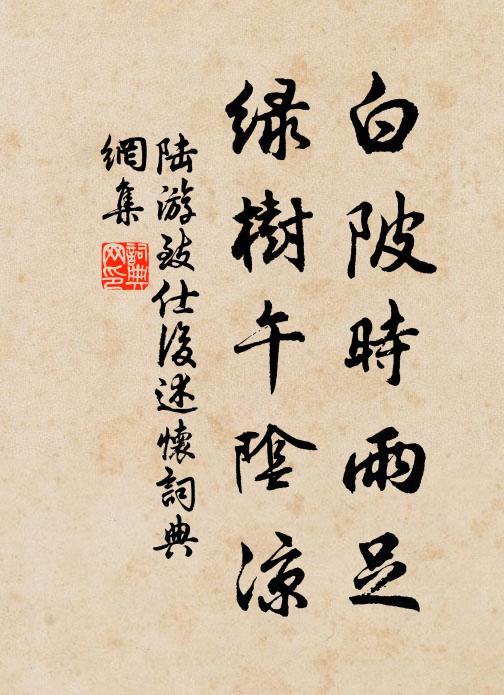 白陂時雨足
緑樹午陰涼
陆游致仕後述懷詞典
網集
詞典
网印